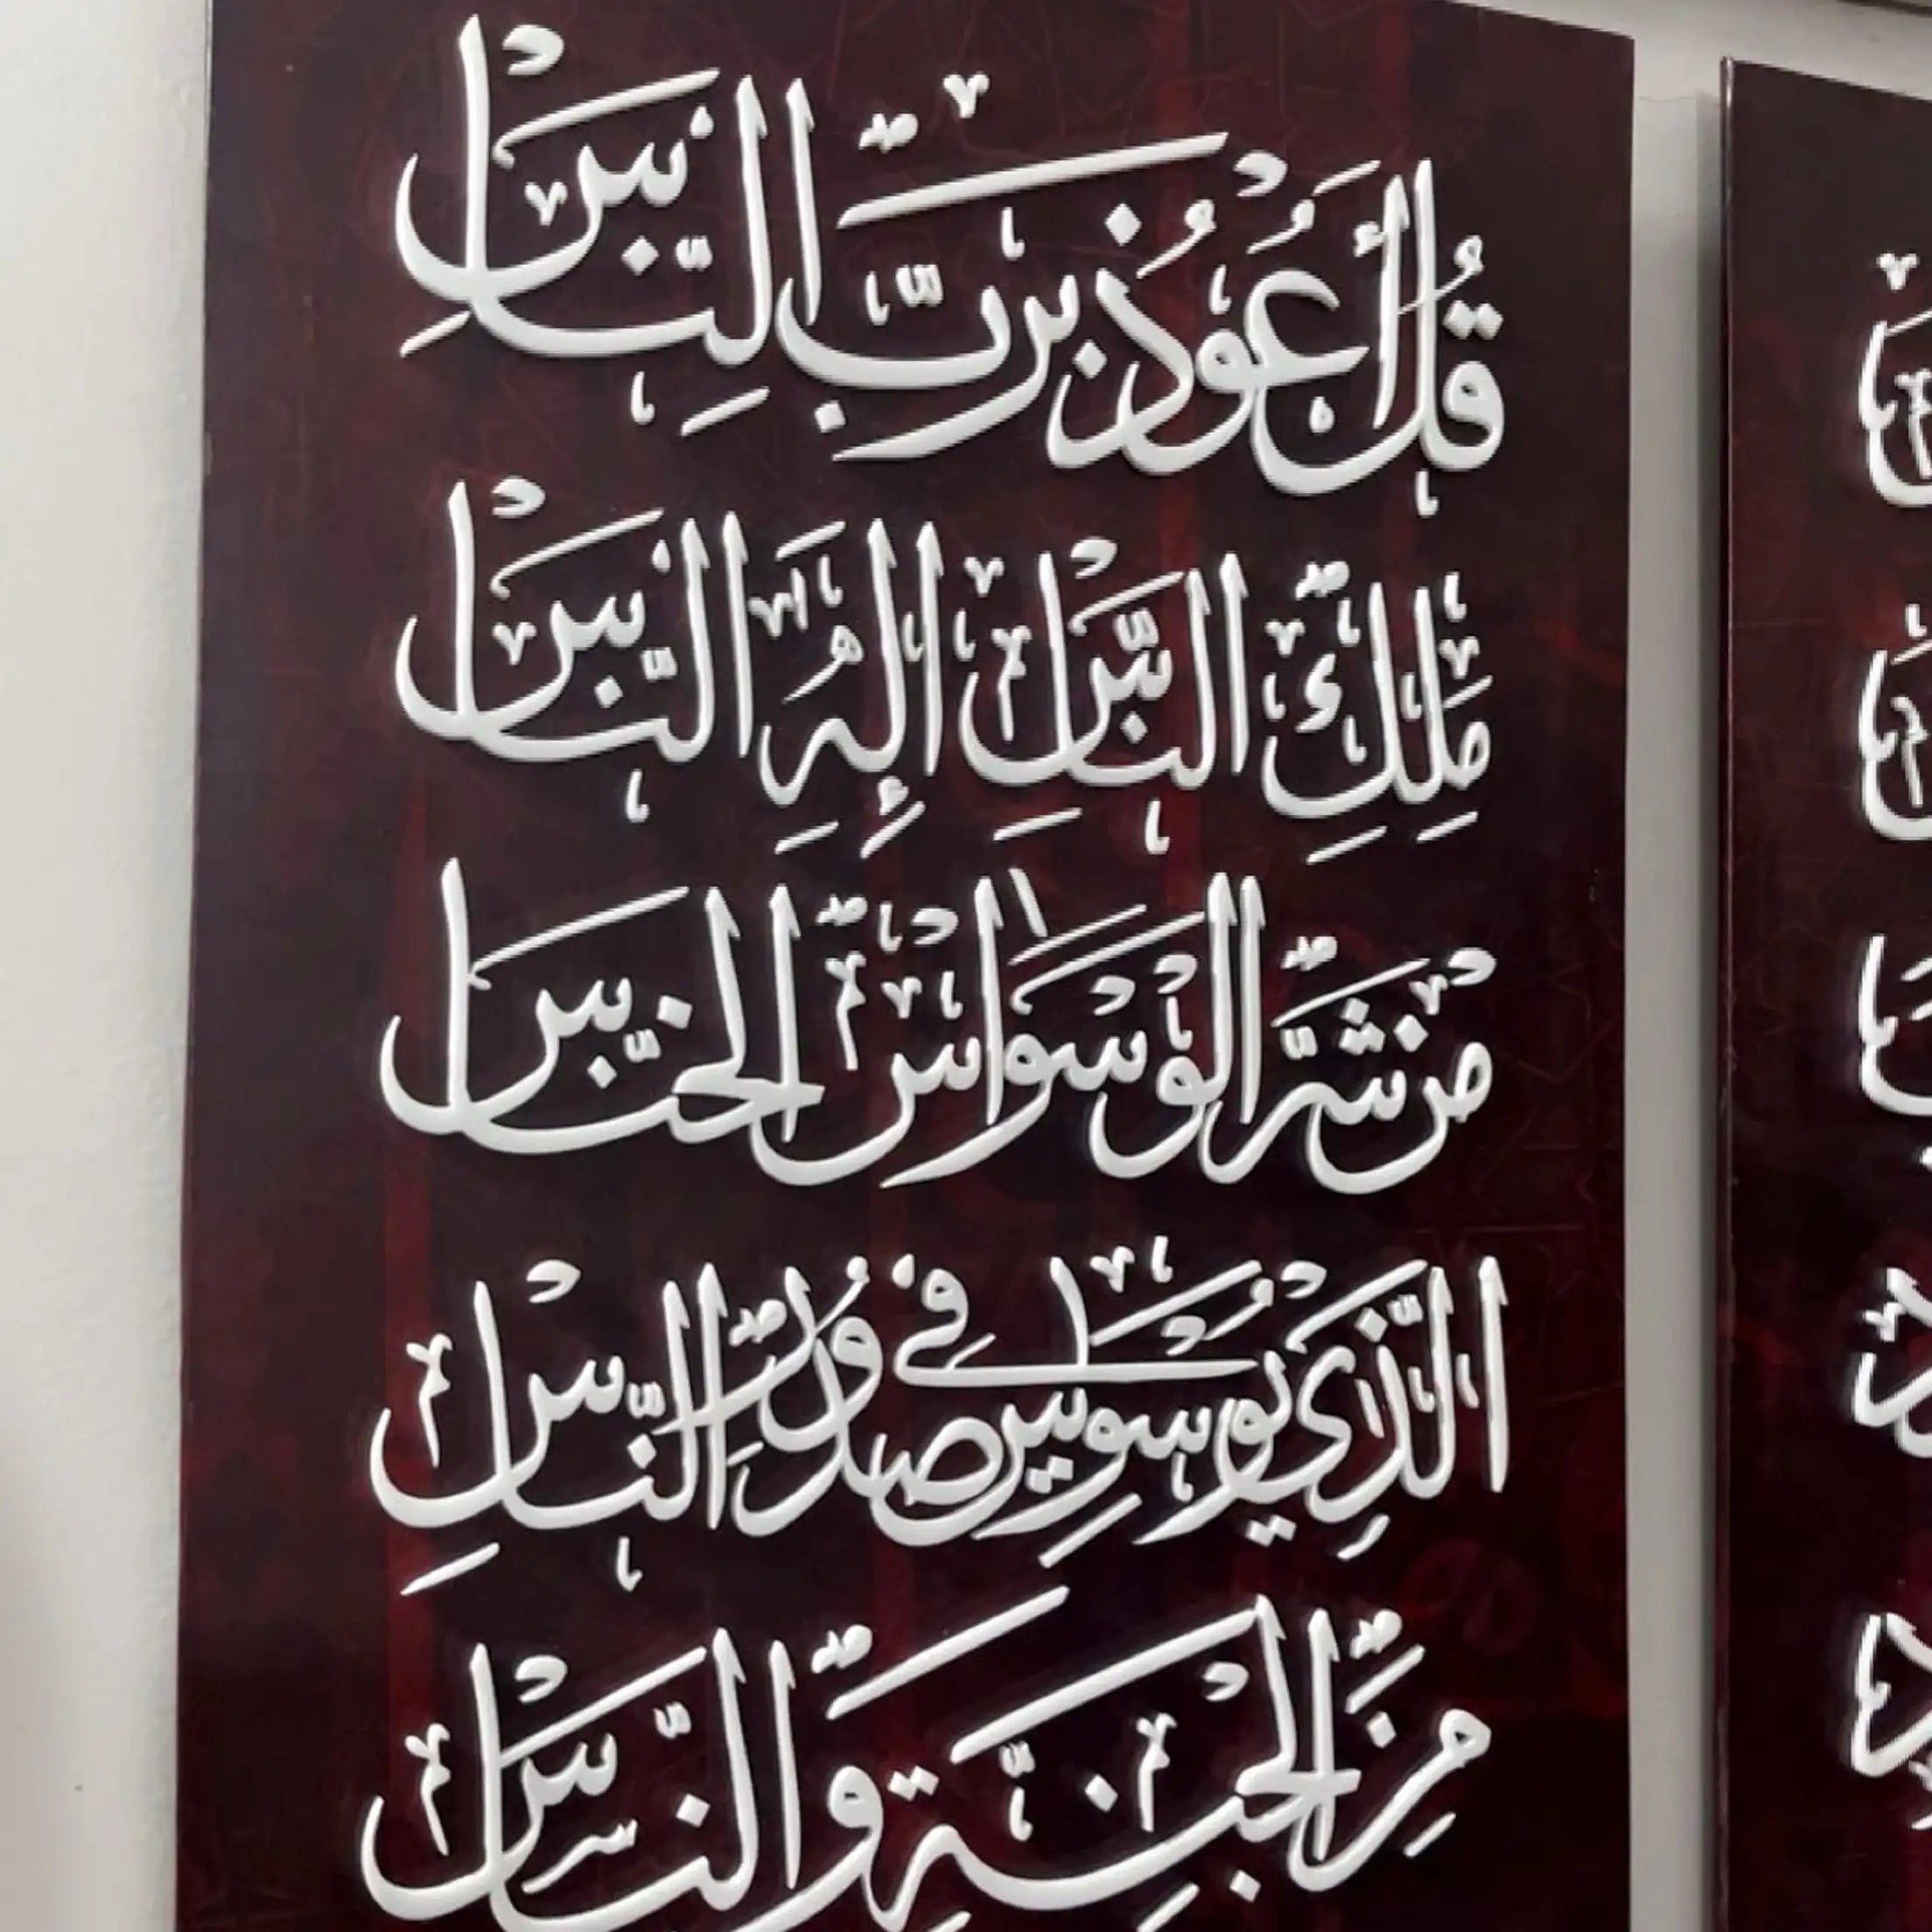 قُلْ أَعُوذُ بِرَبِّ النَّاسِ
مَلِكِ النَّاسِ إِلَهِ النَّاسِ
مِنْ شَرِّ الْوَسْوَاسِ الْخَنَّاسِ
الَّذِي يُوَسْوِسُ فِي صُدُورِ النَّاسِ
مِنَ الْجِنَّةِ وَالنَّاسِ